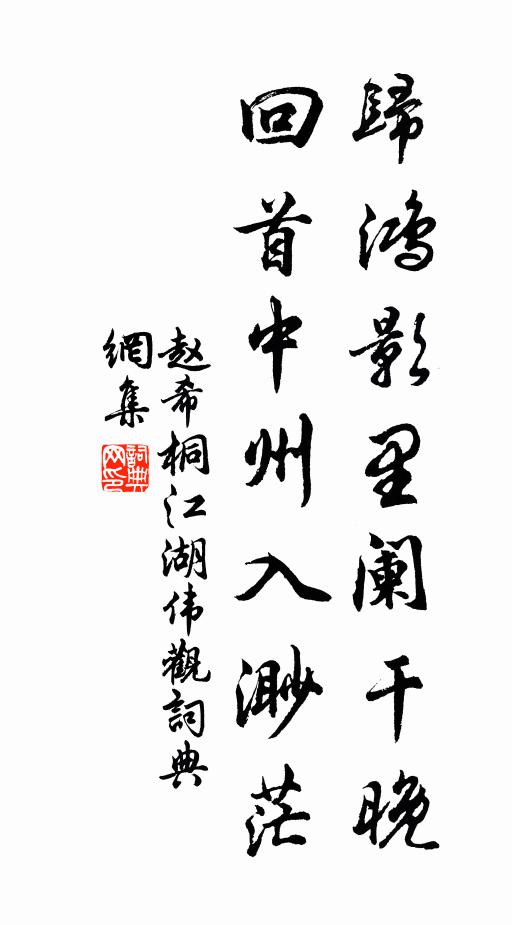 歸鴻影里阑干晚
回首中州入渺茫
赵希桐江湖伟觀詞典
網集
詞典网印